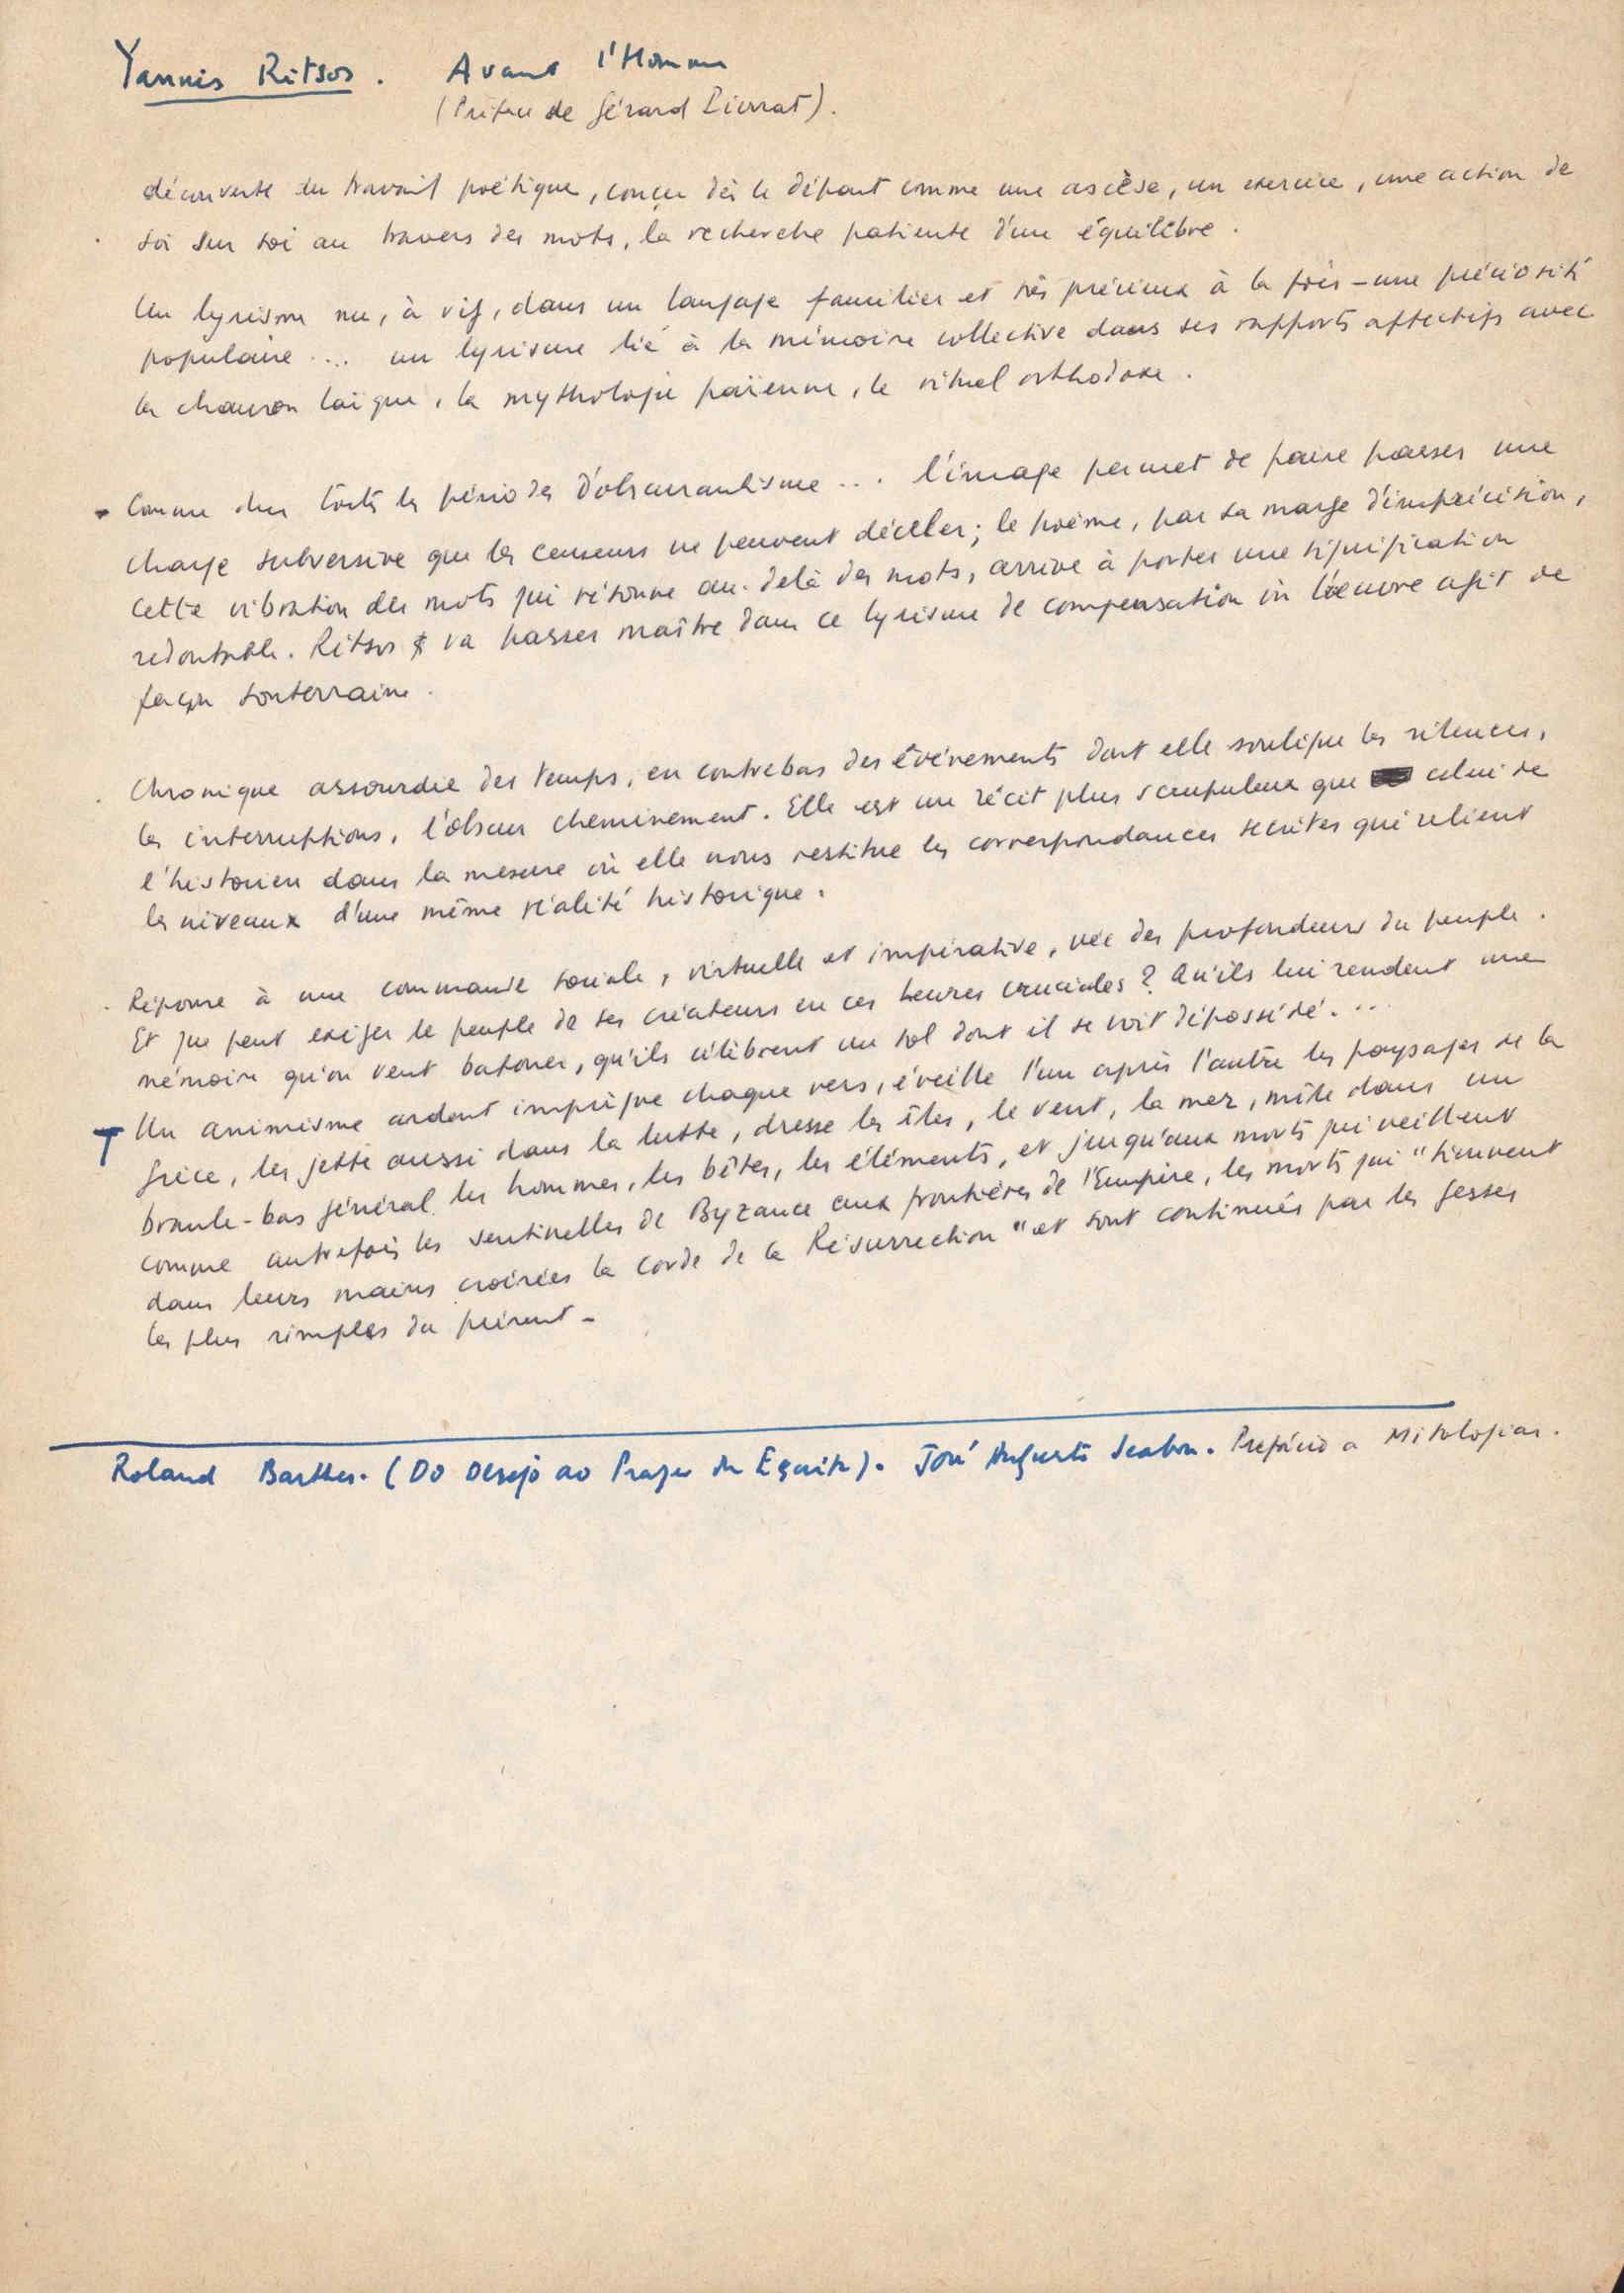 Yannis Ritsos. Avant l'Homme
(Préface de Gérard Pierrat).
découverte du travail poétique, conçu dès le départ comme une ascèse, un exercice, une action de
soi sur soi au travers des mots, la recherche patiente d'un équilibre.
Un lyrisme nu, à vif, dans un langage familier et très précieux à la fois - une préciosité
populaire ... un lyrisme lié à la mémoire collective dans ses rapports affectifs avec
la chanson laïque, la mythologie païenne, le rituel orthodoxe.
- Comme dans toutes les périodes d'obscurantisme ... l'image permet de faire passer une
charge subversive que les censeurs ne peuvent déceler; le poème, par sa marge d'imprécision,
cette vibration des mots qui résonne au-delà des mots, arrive à porter une signification
redoutable. Ritsos va passer maître dans ce lyrisme de compensation où l'oeuvre agit de
façon souterraine.
. Chronique assourdie des temps, en contrebas des événements dont elle souligne les silences,
les interruptions, l'obscur cheminement. Elle est un récit plus scrupuleux que celui de
l'historien dans la mesure où elle nous restitue les correspondances secrètes qui relient
les niveaux d'une même réalité historique.
. Réponse à une commande sociale, virtuelle et impérative, née des profondeurs du peuple.
Et que peut exiger le peuple de ses créateurs en ces heures cruciales? Qu'ils lui rendent une
mémoire qu'on veut bafouer, qu'ils célèbrent un sol dont il se voit dépossédé...
Un animisme ardent imprègne chaque vers, éveille l'un après l'autre les paysages de la
Grèce, les jette aussi dans la lutte, dresse les îles, le vent, la mer, mêle dans un
branle-bas général les hommes, les bêtes, les éléments, et jusqu'aux morts qui veillent
comme autrefois les sentinelles de Byzance aux frontières de l'Empire, les morts qui "tiennent
dans leurs mains croisées la corde de la Résurrection" et sont continués par les gestes
les plus simples du présent -
Roland Barthes. (Do Desejo ao Prazer da Escrita). José Augusto Seabra. Prefácio a Mitologias.